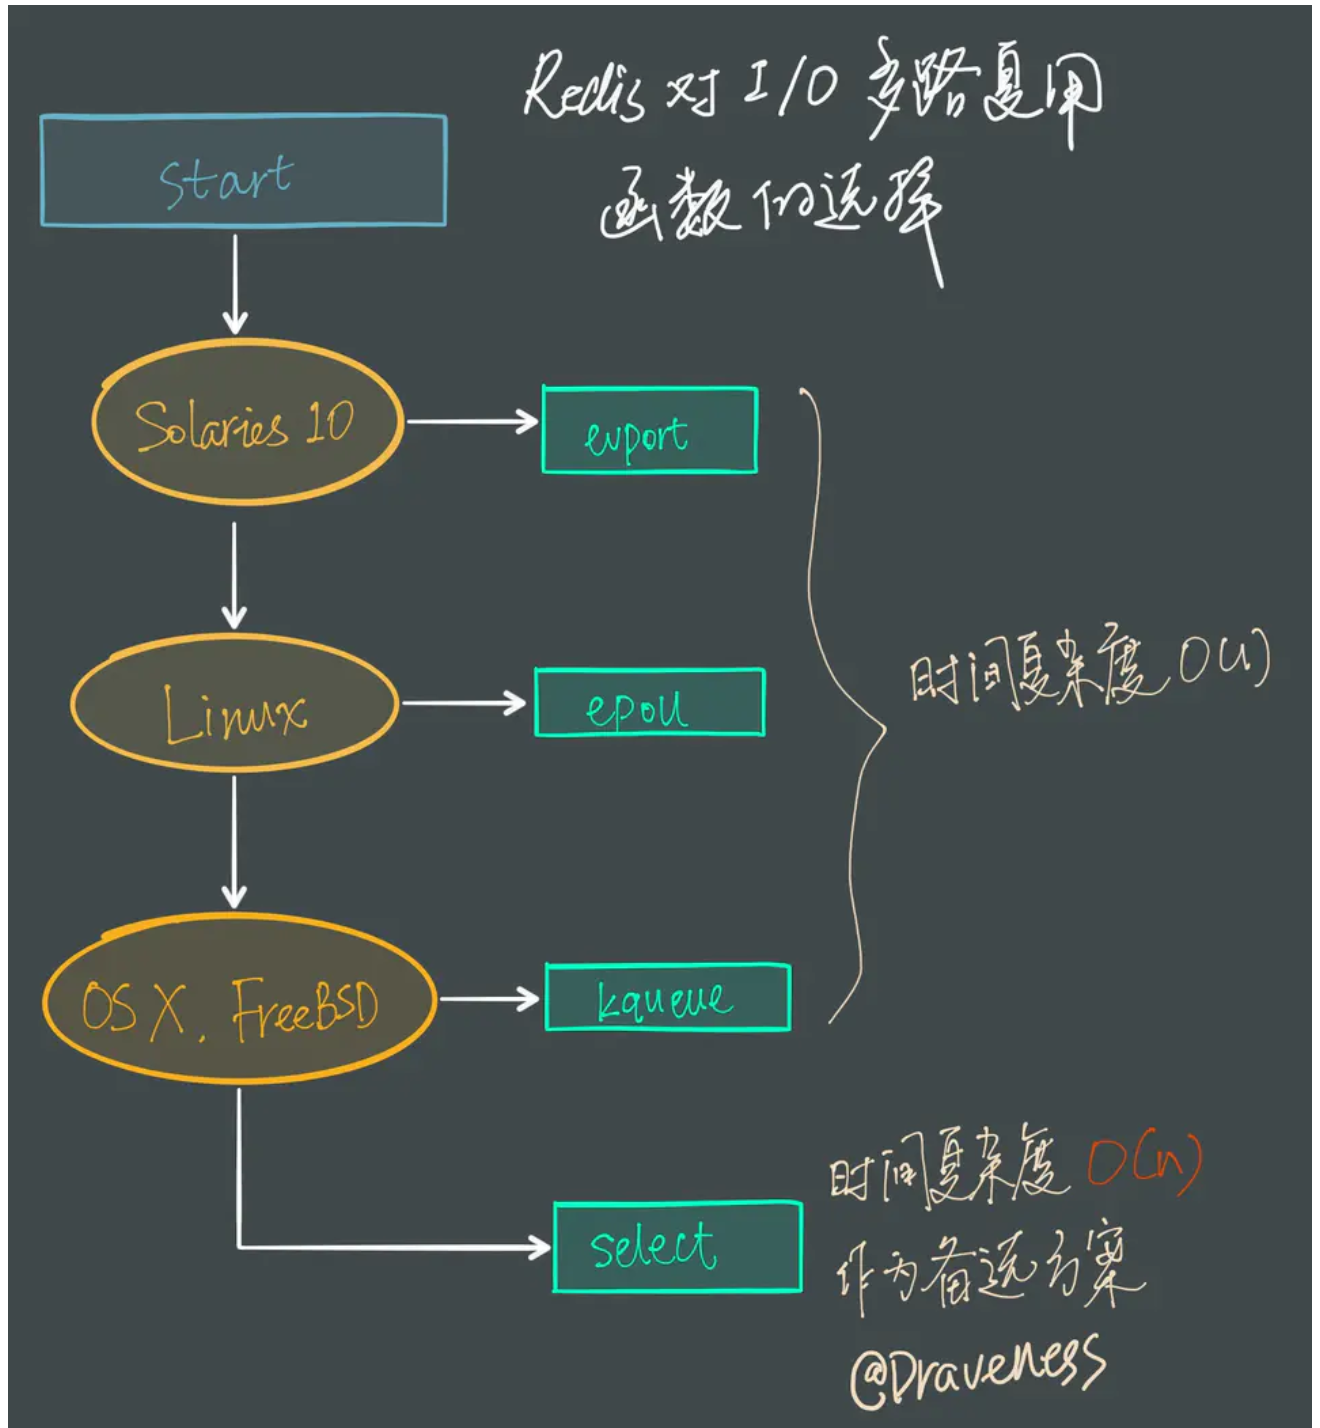 Redis 对 I/O 多路复用
函数的选择
start
Solaries 10
evport
Linux
epoll
时间复杂度 O(1)
OS X, FreeBSD
kqueue
select
时间复杂度 O(n)
作为备选方案
@Draveness